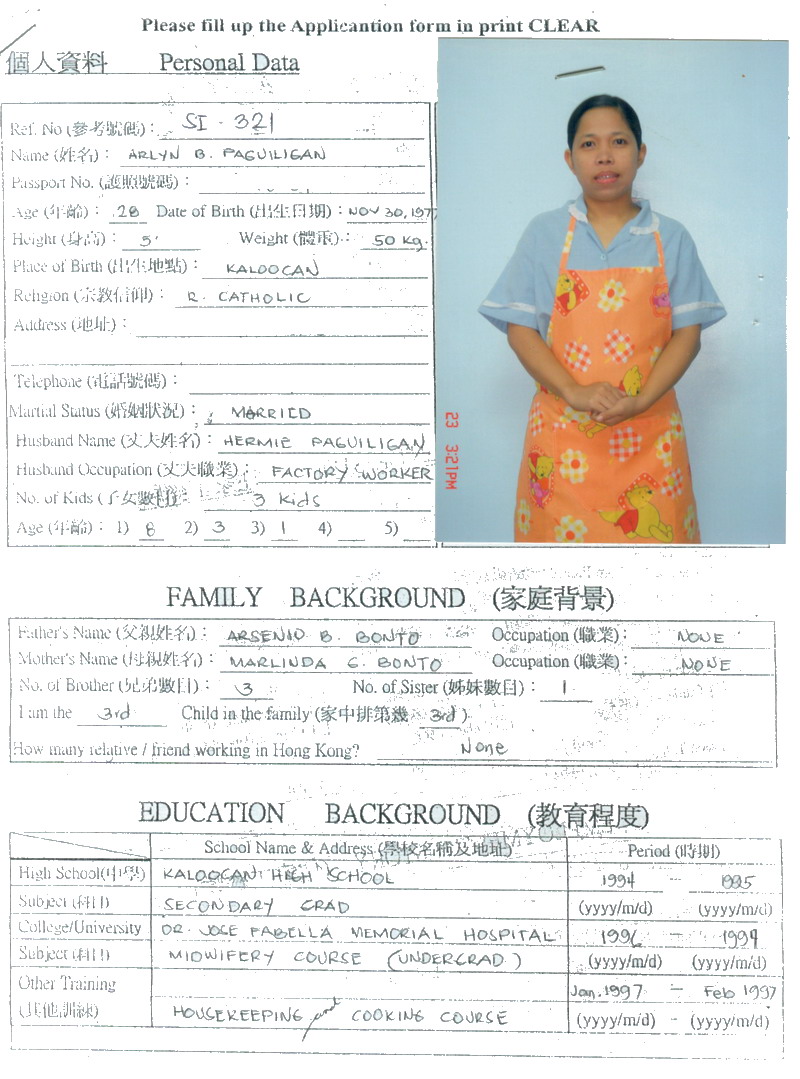 Please fill up the Applicantion form in print CLEAR
個人資料 Personal Data
Ref. No (參考號碼) : SI - 321
Name (姓名) : ARLYN B. PAGUILIGAN
Passport No. (護照號碼) :
Age (年齡) : 28 Date of Birth (出生日期) : NOV 30, 197
Height (身高) : 5' Weight (體重) : 50 Kg.
Place of Birth (出生地點) : KALOOCAN
Religion (宗教信仰) : R. CATHOLIC
Address (地址) :
Telephone (電話號碼) :
Martial Status (婚姻狀況) : MARRIED
Husband Name (丈夫姓名) : HERMIE PAGUILIGAN
Husband Occupation (丈夫職業) : FACTORY WORKER
No. of Kids (子女數目) : 3 Kids
Age (年齡) : 1) 8 2) 3 3) 1 4) 5)
23 3:21PM
FAMILY BACKGROUND (家庭背景)
Father's Name (父親姓名) : ARSENIO B. BONTO Occupation (職業) : NONE
Mother's Name (母親姓名) : MARLINDA G. BONTO Occupation (職業) : NONE
No. of Brother (兄弟數目) : 3 No. of Sister (姊妹數目) : 1
I am the 3rd Child in the family (家中排第幾 3rd )
How many relative / friend working in Hong Kong? None
EDUCATION BACKGROUND (教育程度)
School Name & Address (學校名稱及地址) Period (時期)
High School(中學) KALOOCAN HIGH SCHOOL 1994 - 1995
Subject (科目) SECONDARY GRAD (yyyy/m/d) (yyyy/m/d)
College/University DR. JOSE FABELLA MEMORIAL HOSPITAL 1996 - 1999
Subject (科目) MIDWIFERY COURSE (UNDERGRAD.) (yyyy/m/d) (yyyy/m/d)
Other Training Jan. 1997 - Feb 1997
(其他訓練) HOUSEKEEPING and COOKING COURSE (yyyy/m/d) - (yyyy/m/d)